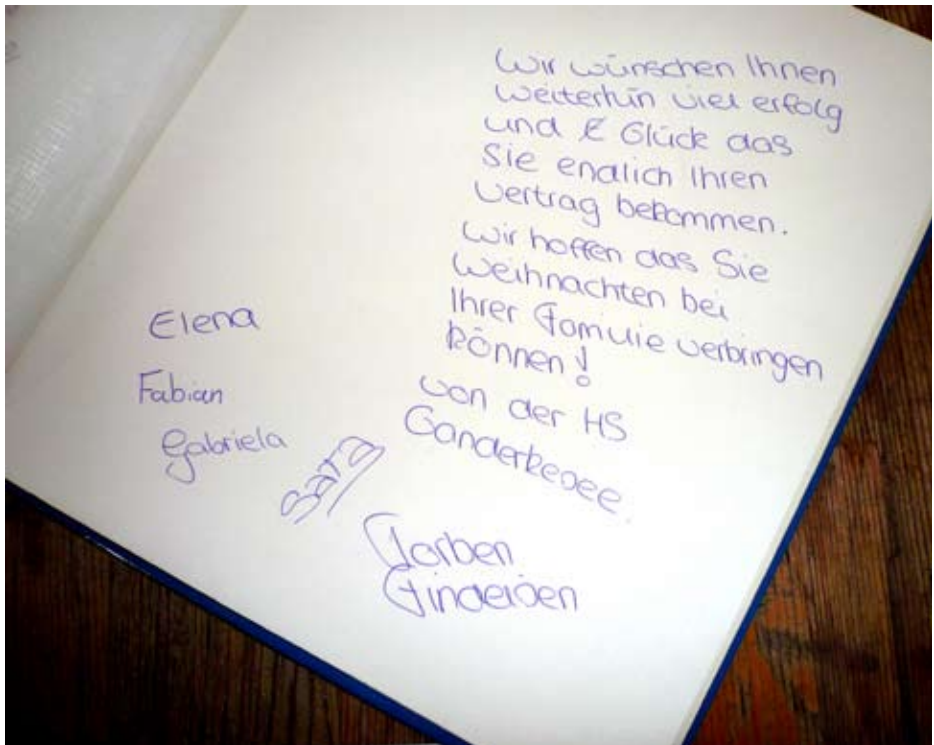 Wir wünschen Ihnen
weiterhin viel erfolg
und Glück das
Sie endlich Ihren
Vertrag bekommen.
Wir hoffen das Sie
Weihnachten bei
Ihrer Familie verbringen
können!
von der HS
Ganderkesee.
Elena
Fabian
Gabriela
Sara
Torben